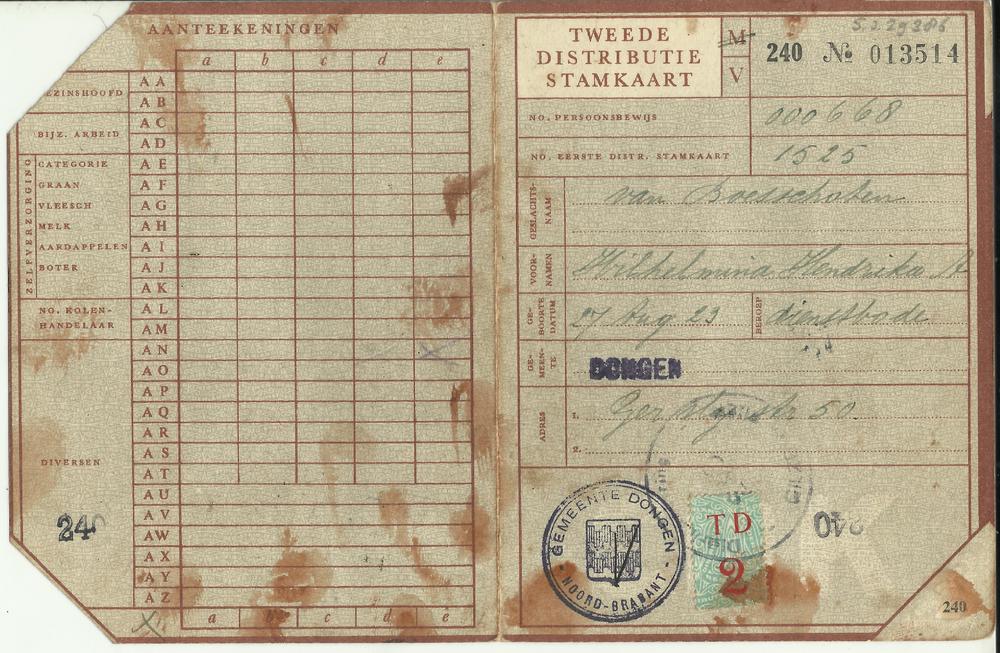 AANTEEKENINGEN
a b c d e
GEZINSHOOFD
BIJZ. ARBEID
ZELFVERZORGING
CATEGORIE
GRAAN
VLEESCH
MELK
AARDAPPELEN
BOTER
NO. KOLEN-
HANDELAAR
DIVERSEN
A A
A B
A C
A D
A E
A F
A G
A H
A I
A J
A K
A L
A M
A N
A O
A P
A Q
A R
A S
A T
A U
A V
A W
A X
A Y
A Z
240
a b c d e
TWEEDE
DISTRIBUTIE
STAMKAART
M
V
240 № 013514
NO. PERSOONSBEWIJS 000668
NO. EERSTE DISTR. STAMKAART 1525
GESLACHTS-
NAAM
van Boesschoten
VOOR-
NAMEN
Wilhelmina Hendrika
GE-
BOORTE
DATUM
27 Aug 23
BEROEP
dienstbode
GE-
MEEN-
TE
DONGEN
ADRES
1. 50
2.
GEMEENTE DONGEN
- NOORD-BRABANT -
TD
2
240
240